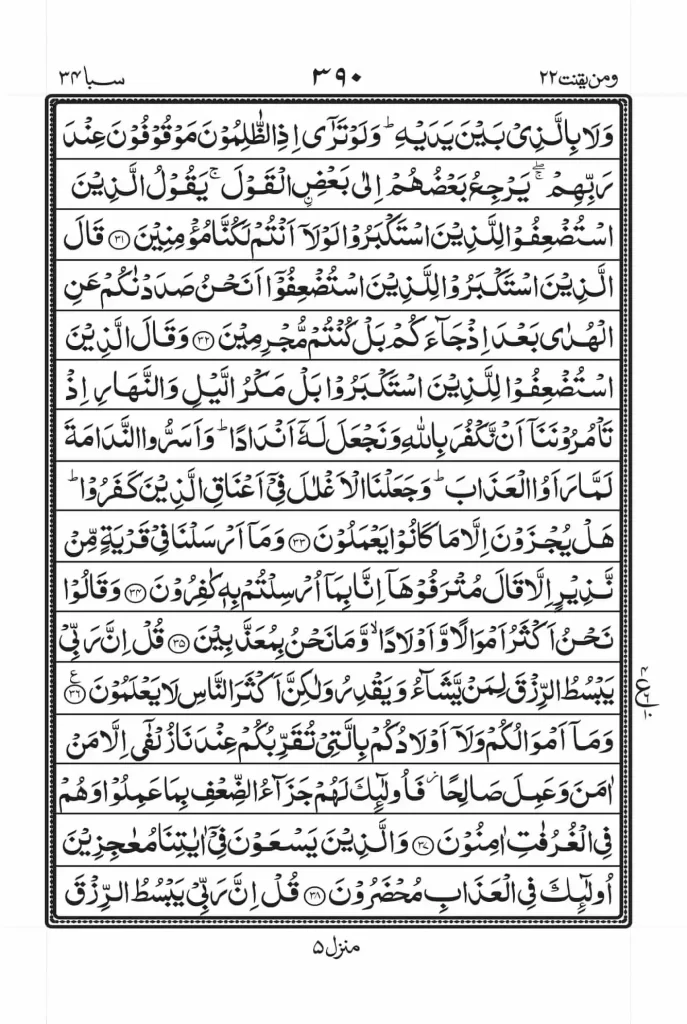 ومن یقنت ۲۲ ۳۹۰ سبا ۳۴
وَلَا بِالَّذِىْ بَيْنَ يَدَيْهِ ؕ وَلَوْ تَرٰٓى اِذِ الظّٰلِمُوْنَ مَوْقُوْفُوْنَ عِنْدَ
رَبِّهِمْ ۖۚ يَرْجِعُ بَعْضُهُمْ اِلٰى بَعْضِ ۨالْقَوْلَ ۚ يَقُوْلُ الَّذِيْنَ
اسْتُضْعِفُوْا لِلَّذِيْنَ اسْتَكْبَرُوْا لَوْلَاۤ اَنْتُمْ لَكُنَّا مُؤْمِنِيْنَ ۳۱ قَالَ
الَّذِيْنَ اسْتَكْبَرُوْا لِلَّذِيْنَ اسْتُضْعِفُوْۤا اَنَحْنُ صَدَدْنٰكُمْ عَنِ
الْهُدٰى بَعْدَ اِذْ جَآءَكُمْ بَلْ كُنْتُمْ مُّجْرِمِيْنَ ۳۲ وَقَالَ الَّذِيْنَ
اسْتُضْعِفُوْا لِلَّذِيْنَ اسْتَكْبَرُوْا بَلْ مَكْرُ الَّيْلِ وَالنَّهَارِ اِذْ
تَاْمُرُوْنَنَاۤ اَنْ نَّكْفُرَ بِاللّٰهِ وَنَجْعَلَ لَهٗۤ اَنْدَادًا ؕ وَاَسَرُّوا النَّدَامَةَ
لَمَّا رَاَوُا الْعَذَابَ ؕ وَجَعَلْنَا الْاَغْلٰلَ فِىْۤ اَعْنَاقِ الَّذِيْنَ كَفَرُوْا ؕ
هَلْ يُجْزَوْنَ اِلَّا مَا كَانُوْا يَعْمَلُوْنَ ۳۳ وَمَاۤ اَرْسَلْنَا فِىْ قَرْيَةٍ مِّنْ
نَّذِيْرٍ اِلَّا قَالَ مُتْرَفُوْهَاۤ اِنَّا بِمَاۤ اُرْسِلْتُمْ بِهٖ كٰفِرُوْنَ ۳۴ وَقَالُوْا
نَحْنُ اَكْثَرُ اَمْوَالًا وَّاَوْلَادًا ۙ وَّمَا نَحْنُ بِمُعَذَّبِيْنَ ۳۵ قُلْ اِنَّ رَبِّىْ
يَبْسُطُ الرِّزْقَ لِمَنْ يَّشَآءُ وَيَقْدِرُ وَلٰكِنَّ اَكْثَرَ النَّاسِ لَا يَعْلَمُوْنَ ۳۶ ع
وَمَاۤ اَمْوَالُكُمْ وَلَاۤ اَوْلَادُكُمْ بِالَّتِىْ تُقَرِّبُكُمْ عِنْدَنَا زُلْفٰٓى اِلَّا مَنْ
اٰمَنَ وَعَمِلَ صَالِحًا ؗ فَاُولٰٓئِكَ لَهُمْ جَزَآءُ الضِّعْفِ بِمَا عَمِلُوْا وَهُمْ
فِى الْغُرُفٰتِ اٰمِنُوْنَ ۳۷ وَالَّذِيْنَ يَسْعَوْنَ فِىْۤ اٰيٰتِنَا مُعٰجِزِيْنَ
اُولٰٓئِكَ فِى الْعَذَابِ مُحْضَرُوْنَ ۳۸ قُلْ اِنَّ رَبِّىْ يَبْسُطُ الرِّزْقَ
منزل ۵